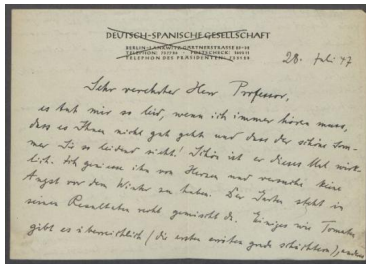 DEUTSCH-SPANISCHE GESELLSCHAFT
BERLIN-LANKWITZ, GÄRTNERSTRASSE
TELEPHON: POSTSCHECK:
TELEPHON DES PRÄSIDENTEN:
28. Juli 47
Sehr verehrter Herr Professor,
es tut mir so leid, wenn ich immer hören muss,
dass es Ihnen nicht gut geht und dass der schöne Som-
mer Sie so leiden sieht! Schön ist er dieses Mal wirk-
lich. Ich geniesse ihn von Herzen und versuche keine
Angst vor dem Winter zu haben. Der Garten steht in
seinen Resultaten recht gemischt da. Einiges wie Tomaten
gibt es überreichlich (die ersten reifen grade schüchtern), andres